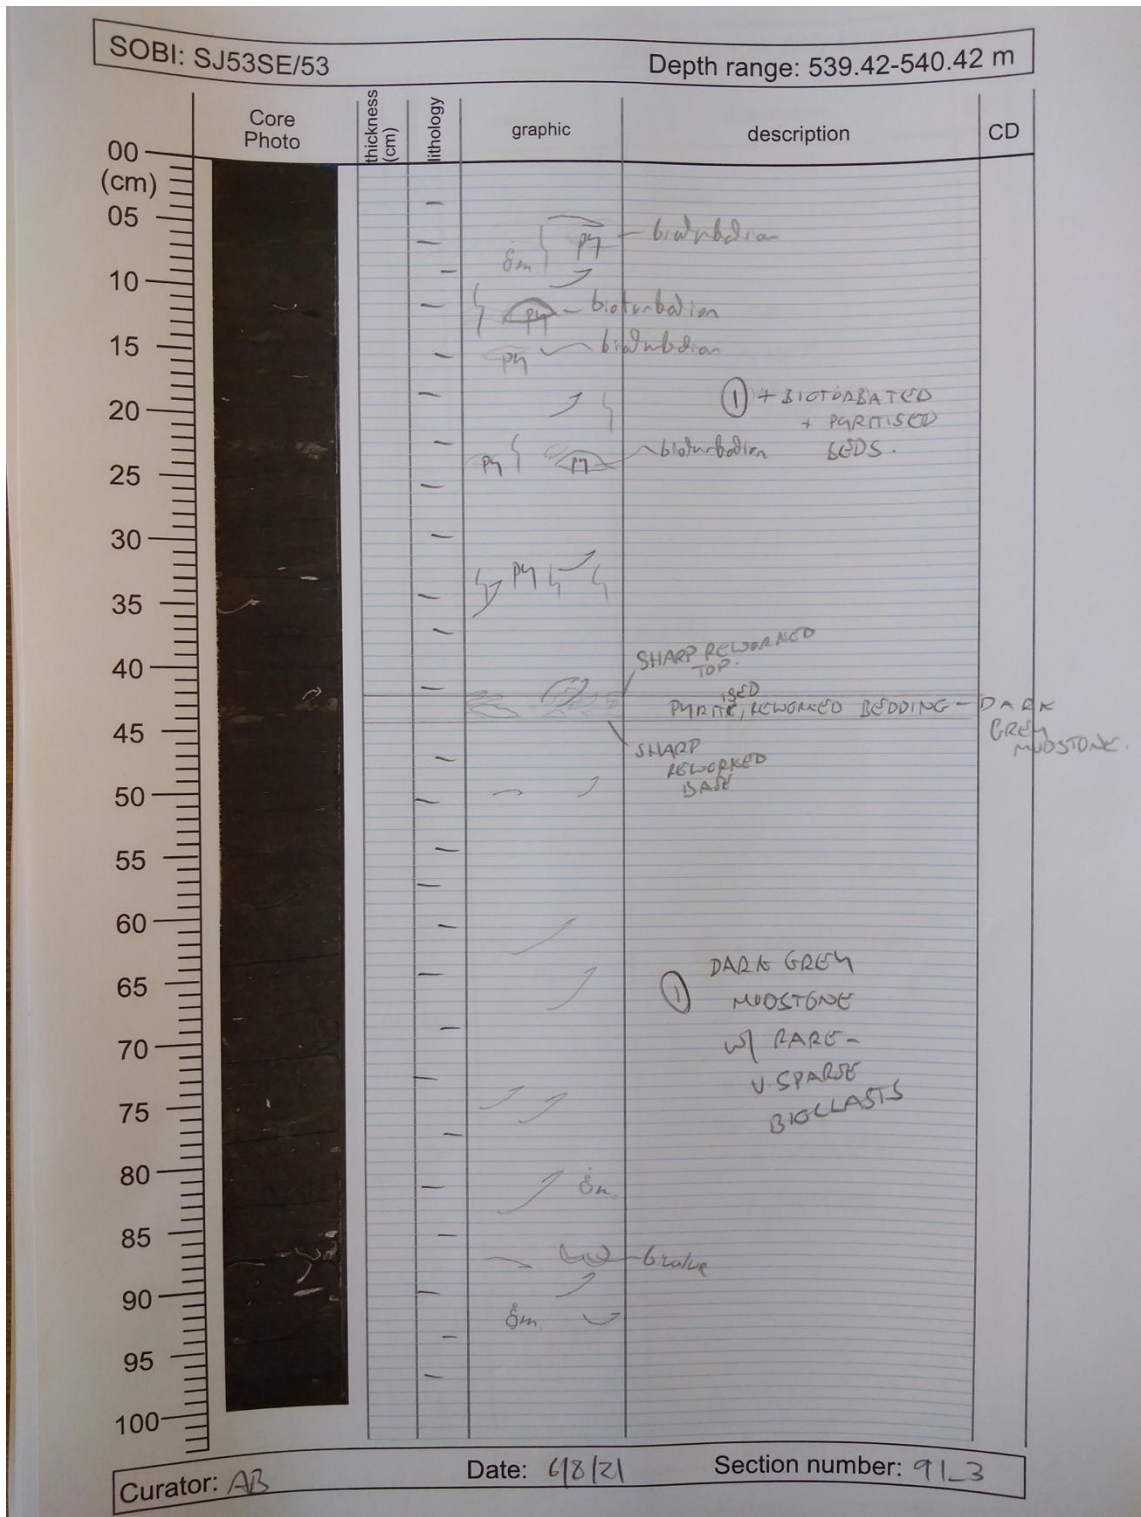 SOBI: SJ53SE/53
Depth range: 539.42-540.42 m
Core Photo
thickness (cm)
lithology
graphic
description
CD
00
(cm)
05
10
15
20
25
30
35
40
45
50
55
60
65
70
75
80
85
90
95
100
py
bioturbation
δm
py
bioturbation
py
bioturbation
① + BIOTURBATED
+ PYRITISED
BEDS.
py
py
bioturbation
py
SHARP REWORKED
TOP.
ISED
PYRITE, REWORKED BEDDING - DARK
GREY
MUDSTONE.
SHARP
REWORKED
BASE
① DARK GREY
MUDSTONE
W/ RARE -
V SPARSE
BIOCLASTS
δm
bivalve
δm
Curator: AB
Date: 6/8/21
Section number: 91_3